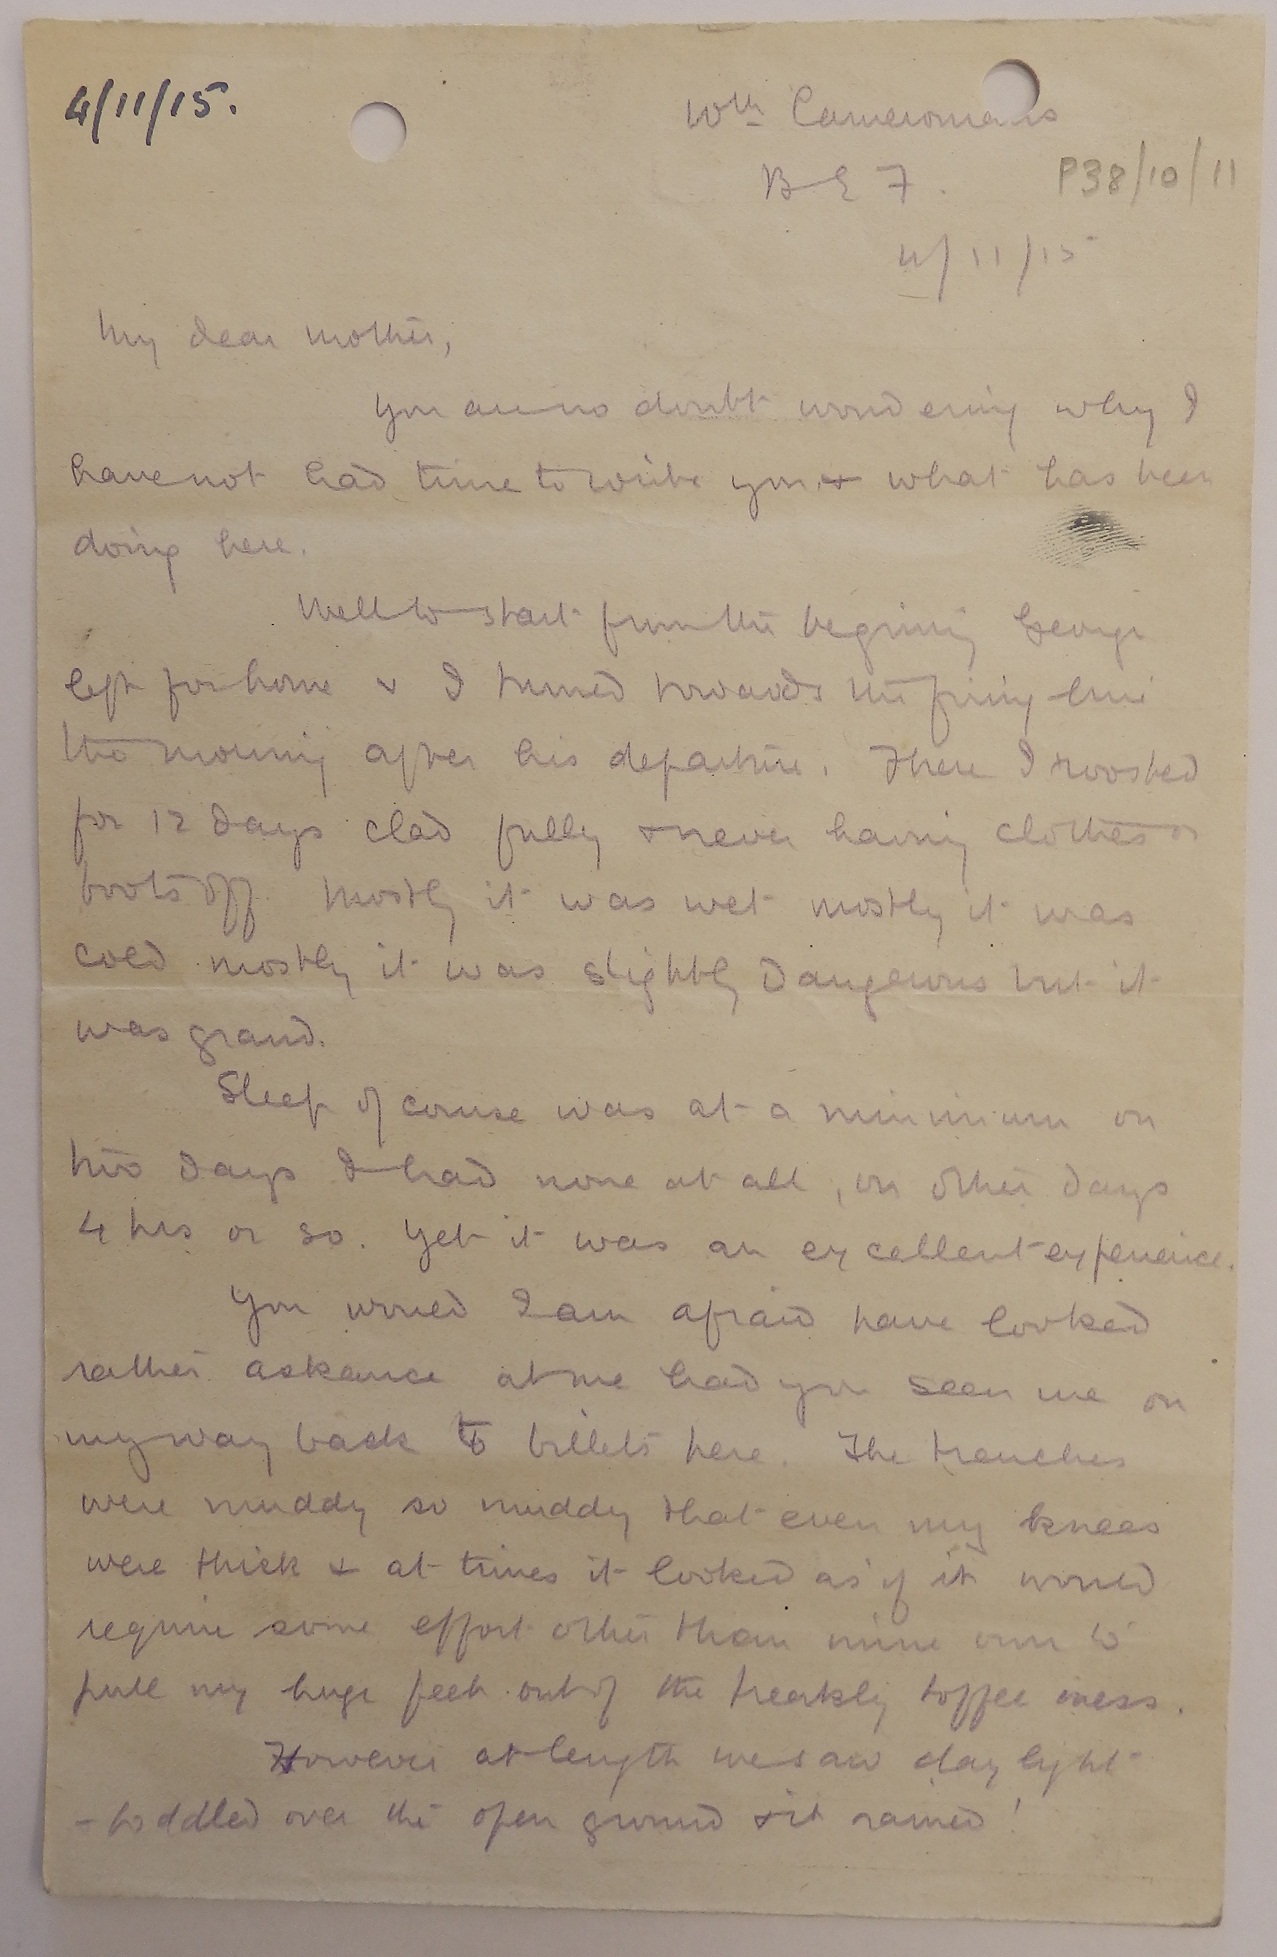 4/11/15.
10th Cameronians
P38/10/11
B E F.
4/11/15
My dear mother,
You are no doubt wondering why I
have not had time to write you & what has been
doing here.
Well to start from the begining George
left for home & I turned towards the firing line
the morning after his departure. There I roosted
for 12 days clad fully & never having clothes or
boots off. Mostly it was wet mostly it was
cold mostly it was slightly dangerous but it
was grand.
Sleep of course was at a minimum on
two days I had none at all, on other days
4 hrs or so. Yet it was an excellent experience.
You would I am afraid have looked
rather askance at me had you seen me on
my way back to billets here. The trenches
were muddy so muddy that even my knees
were thick & at times it looked as if it would
require some effort other than mine own to
pull my huge feet out of the treakly toffee mess.
However at length we saw daylight
- toddled over the open ground & it rained!